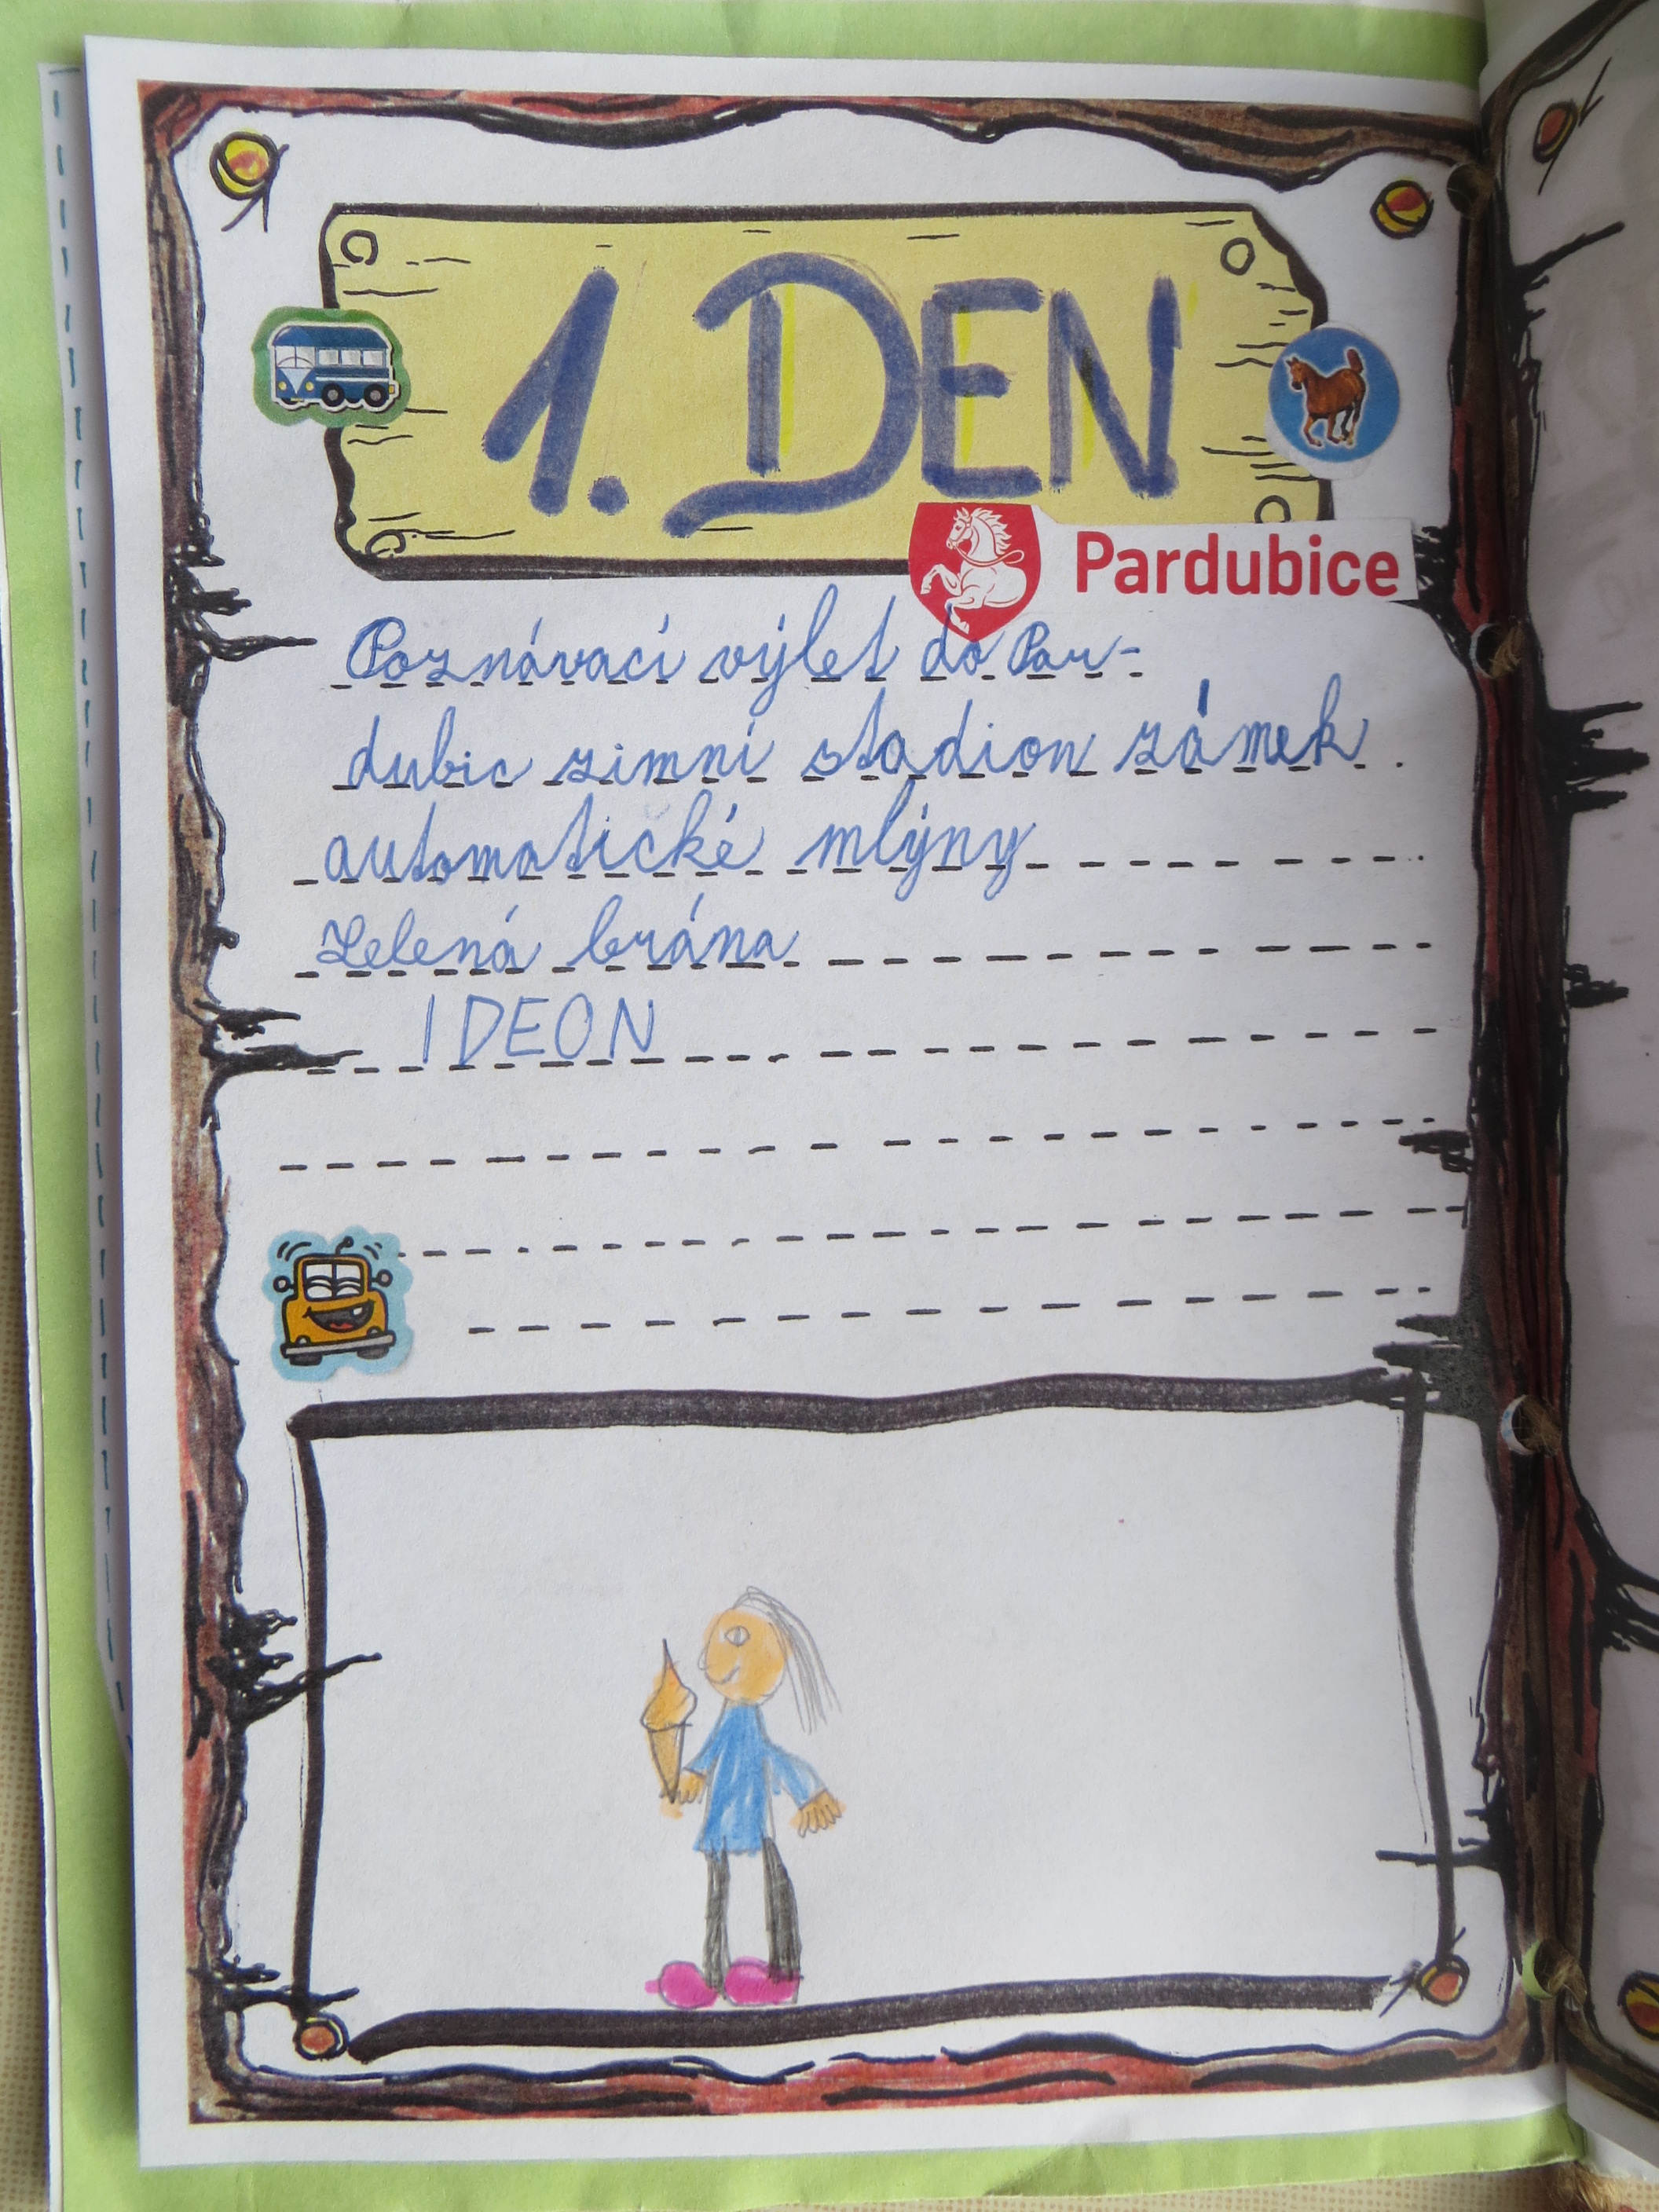 1. DEN
Pardubice
Poznávací výlet do Par-
dubic zimní stadion zámek
automatické mlýny
Zelená brána
IDEON